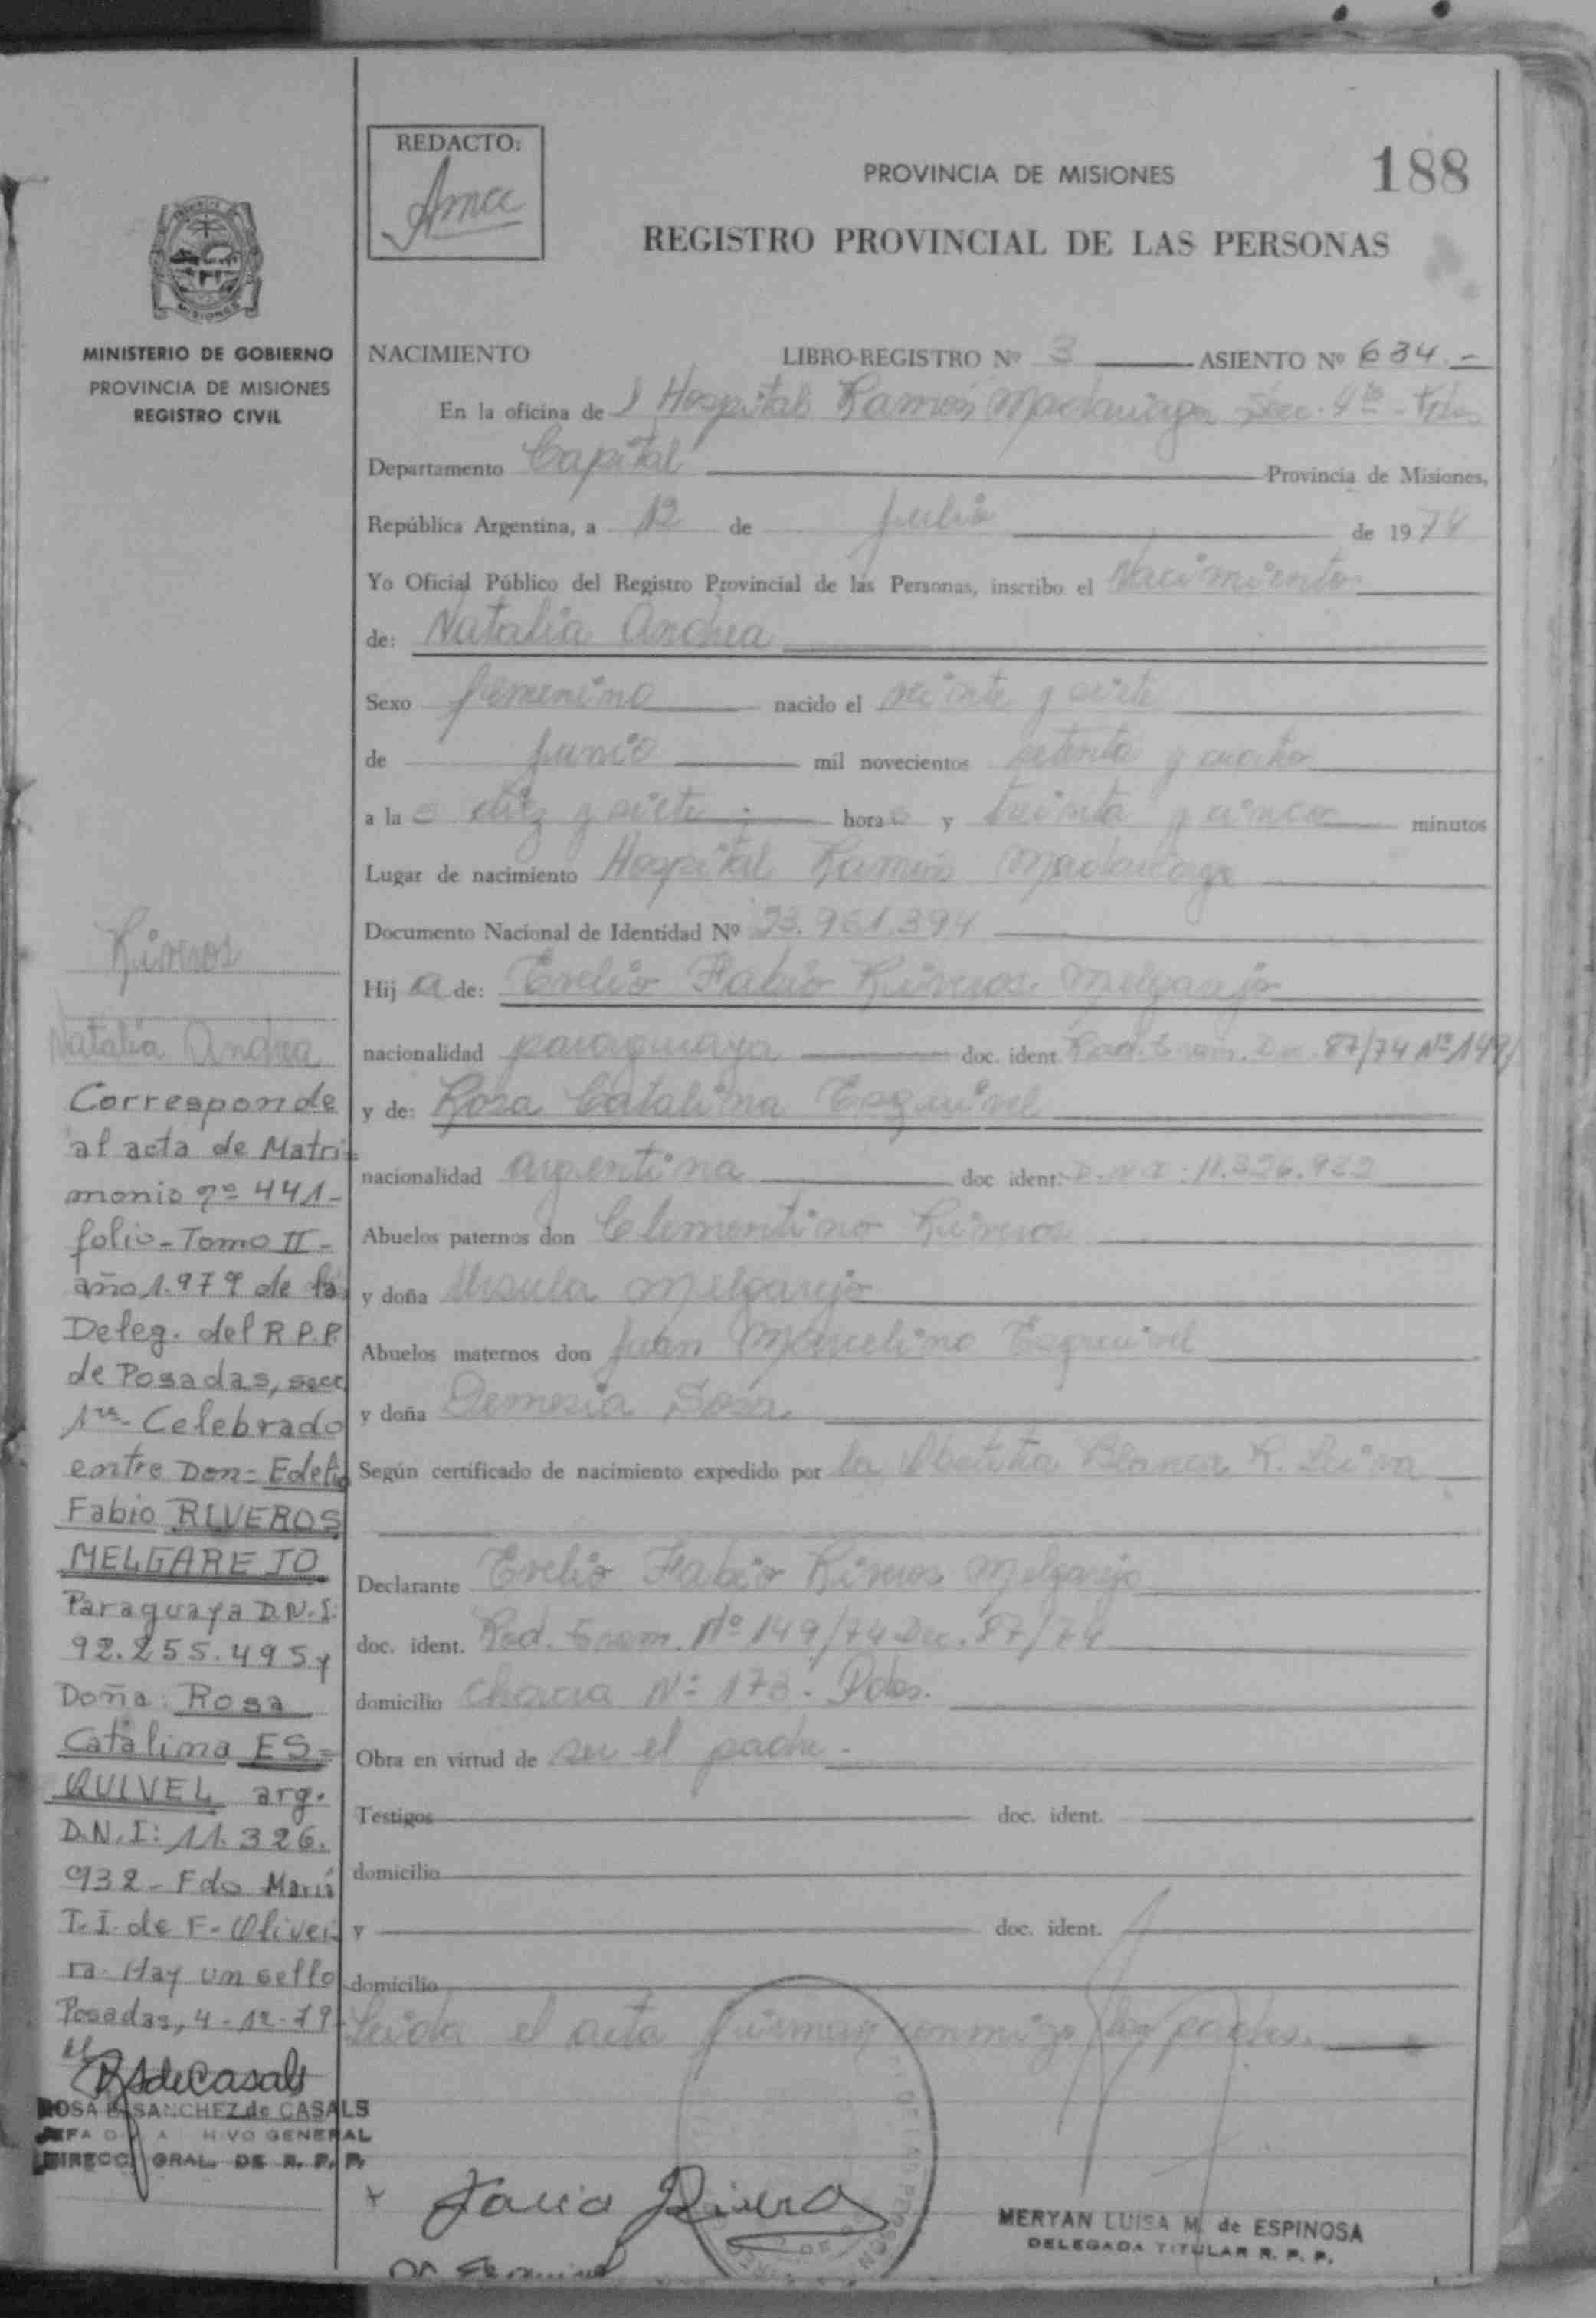 REDACTO:
PROVINCIA DE MISIONES
188
REGISTRO PROVINCIAL DE LAS PERSONAS
MISIONES
MINISTERIO DE GOBIERNO
PROVINCIA DE MISIONES
REGISTRO CIVIL
NACIMIENTO LIBRO-REGISTRO Nº 3 ASIENTO Nº 634.-
En la oficina de l Hospital Ramón Madariaga Sec. 4ta - Pdas
Departamento Capital Provincia de Misiones,
República Argentina, a 12 de julio de 1974
Yo Oficial Público del Registro Provincial de las Personas, inscribo el Nacimiento
de: Natalia Andrea
Sexo femenino nacido el veinte y siete
de junio mil novecientos setenta y cuatro
a la s diez y siete hora s y treinta y cinco minutos
Lugar de nacimiento Hospital Ramón Madariaga
Documento Nacional de Identidad Nº 23.961.394
Hij a de: Evelio Fabio Riveros Melgarejo
nacionalidad paraguaya doc. ident. Rad. 87/74 Nº 149/
y de: Rosa Catalina Esquivel
nacionalidad argentina doc ident: D.N.I: 11.326.932
Abuelos paternos don Clementino Riveros
y doña Ursula Melgarejo
Abuelos maternos don Juan Marcelino Esquivel
y doña Demesia Sosa
Según certificado de nacimiento expedido por la Obstetra Blanca R. Leiva
Declarante Evelio Fabio Riveros Melgarejo
doc. ident. Rad. Nº 149/74 Dec. 87/74
domicilio chacra Nº 173. Pdas.
Obra en virtud de ser el padre.
Testigos doc. ident.
domicilio
y doc. ident.
domicilio
Leída el acta firman conmigo los padres.
Riveros
Natalia Andrea
Corresponde
al acta de Matri-
monio nº 441-
folio-Tomo II-
año 1.979 de la
Deleg. del R.P.P.
de Posadas, secc
1ra- Celebrado
entre Don= Edelio
Fabio RIVEROS
MELGAREJO
Paraguaya D.N.I.
92.255.495 y
Doña: Rosa
Catalina ES=
QUIVEL arg.
D.N.I: 11.326.
932 - Fdo María
T.I. de F- Olivei
ra. Hay un sello
Posadas, 4-12-79
RSdeCasals
ROSA SANCHEZ de CASALS
GENERAL
DIRECC. GRAL. DE R. P. P.
Favio Rivero
MERYAN LUISA M. de ESPINOSA
DELEGADA TITULAR R. P. P.